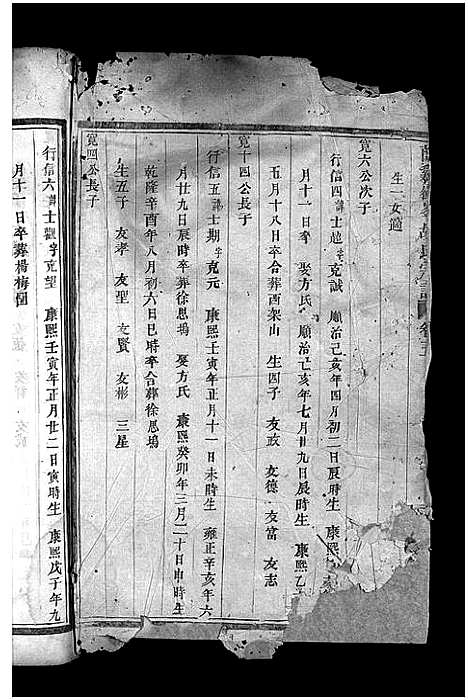 生一女適
寬六公次子
行信四諱士遠字克誠 順治己亥年四月初二日辰時生 康熙
月十一日卒 娶方氏 順治己亥年七月廿九日辰時生 康熙乙
五月十八日卒合葬西架山 生四子 友政 友德 友富 友志
寬十四公長子
行信五諱士期字克元 康熙壬寅年正月十一日未時生 雍正辛亥年六
月廿九日辰時卒葬徐思塢 娶方氏 康熙癸卯年三月二十日申時生
乾隆辛酉年八月初六日巳時卒合葬徐思塢
生五子 友孝 友聖 友賢 友彬 三星
寬四公長子
行信六諱士觀字克望 康熙壬寅年正月廿二日寅時生 康熙戊子年九
月十一日卒葬楊梅園